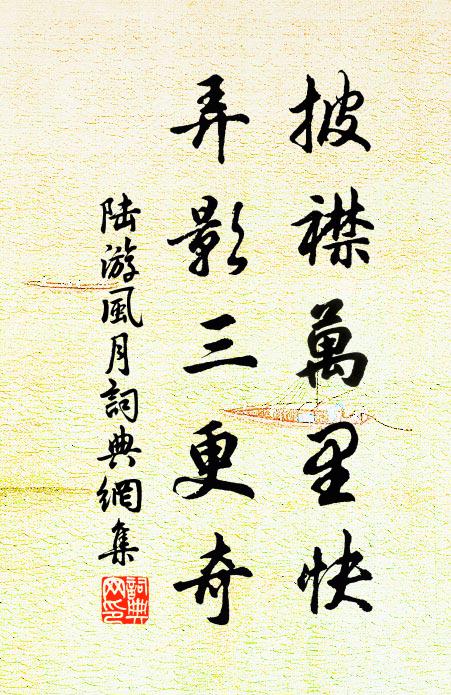 披襟萬里快
弄影三更奇
陆游風月詞典網集
詞典网印